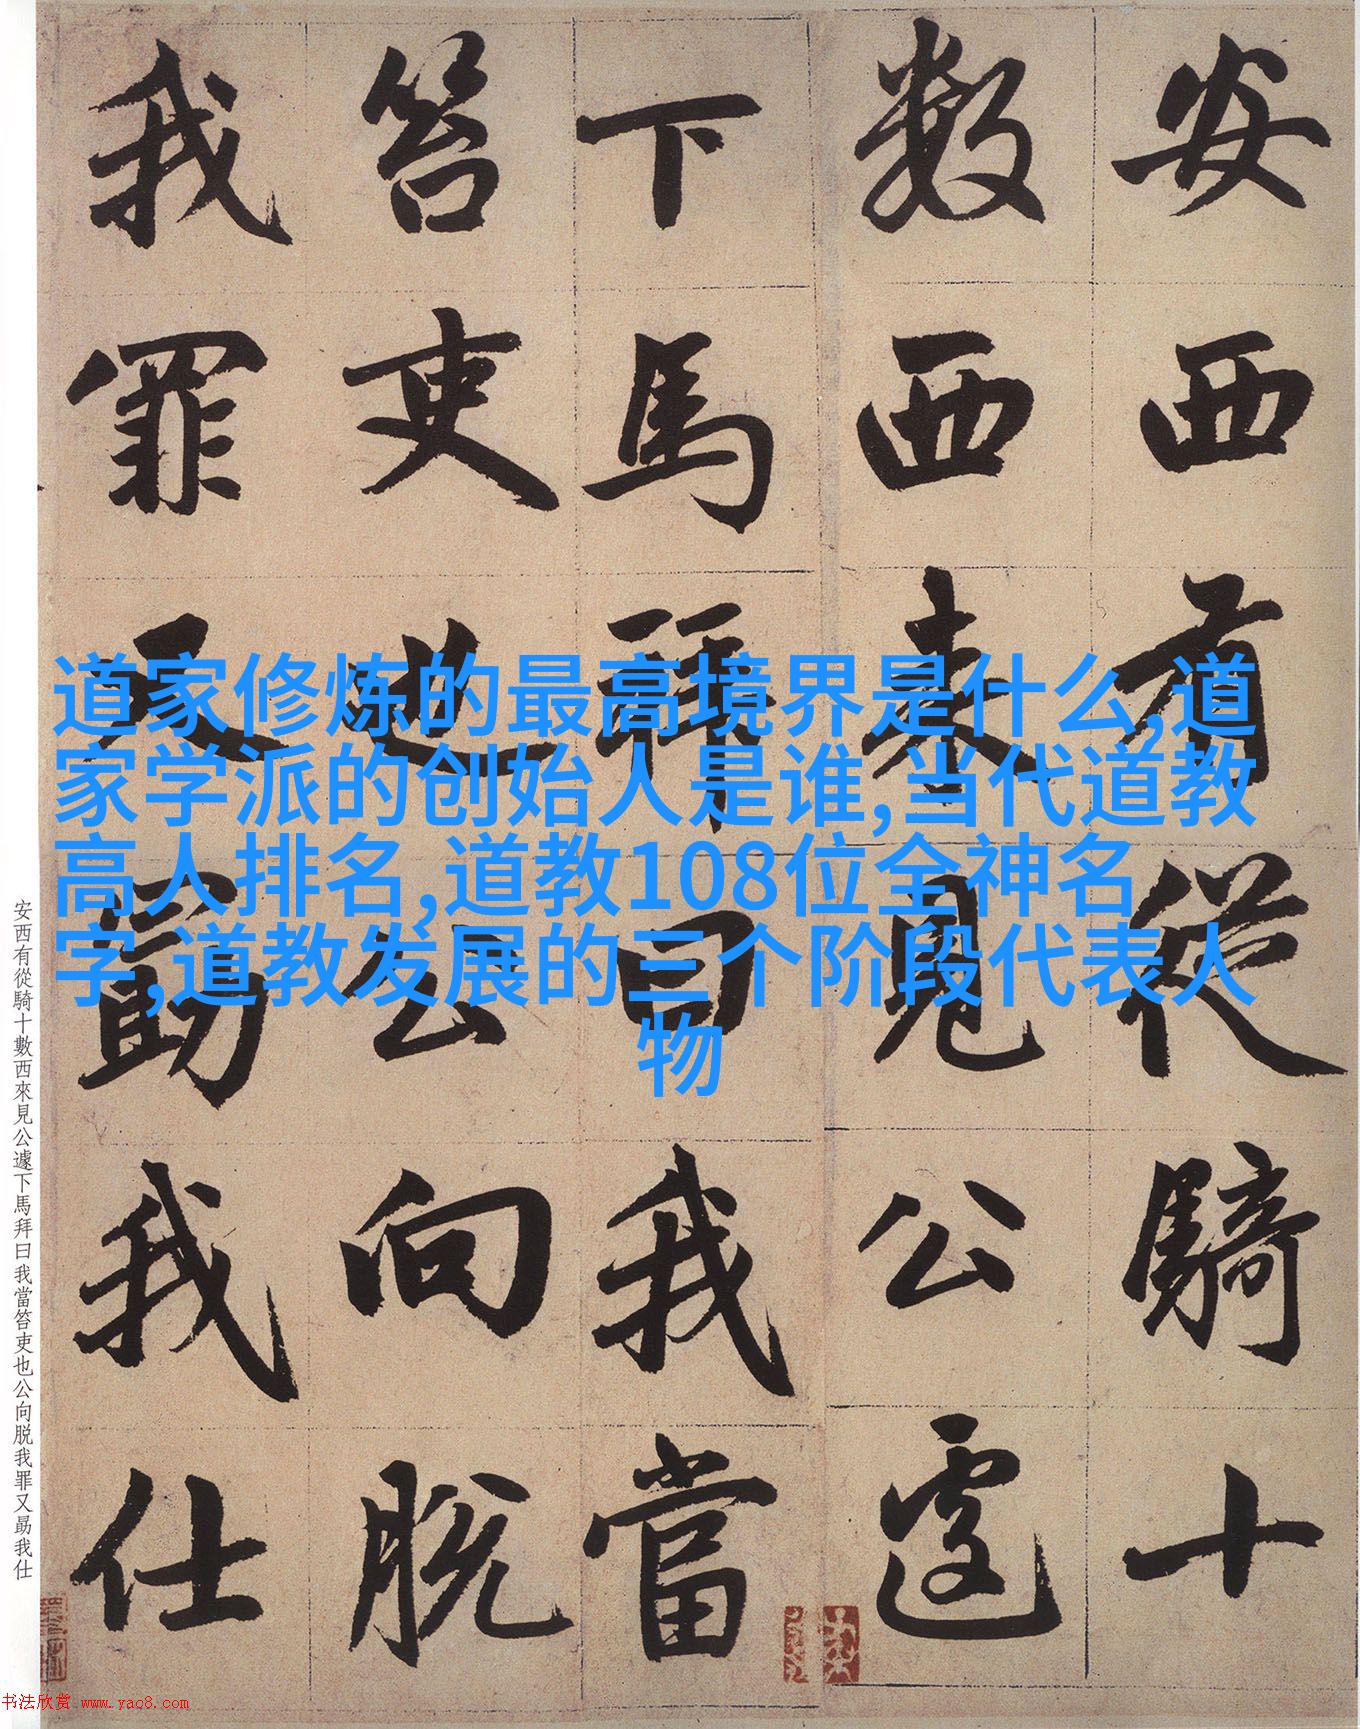 安西有從騎十
數西來見公遽
下馬拜曰我當
笞吏也公向脱
我罪又勗我仕
道家修炼的最高境界是什么,道
家学派的创始人是谁,当代道教
高人排名,道教108位全神名
字,道教发展的三个阶段代表人
物
安西有從騎十數西來見公遽下馬拜曰我當笞吏也公向脱我罪又勗我仕
书法欣赏 www.yac8.com